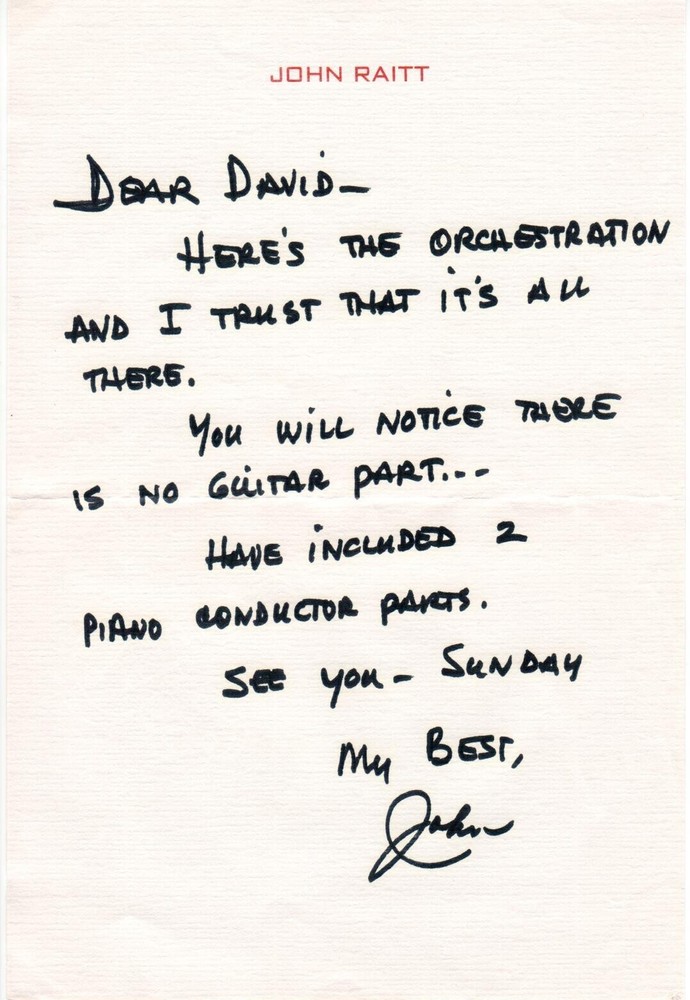 JOHN RAITT
DEAR DAVID—
HERE'S THE ORCHESTRATION
AND I TRUST THAT IT'S ALL
THERE.
YOU WILL NOTICE THERE
IS NO GUITAR PART...
HAVE INCLUDED 2
PIANO CONDUCTOR PARTS.
SEE YOU— SUNDAY
MY BEST,
John